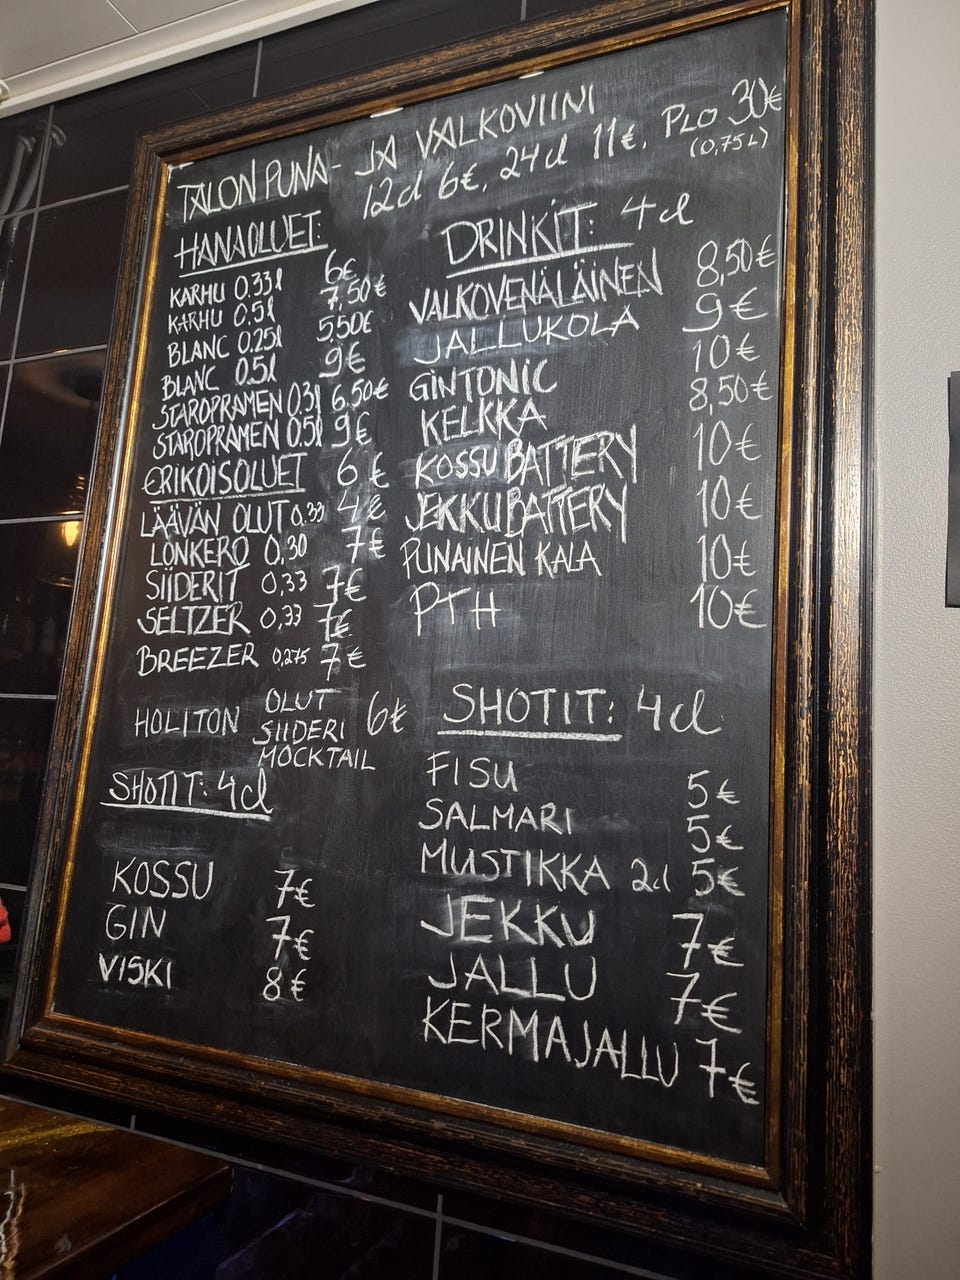 TALON PUNA- JA VALKOVIINI
12cl 6€, 24cl 11€, PLO 30€
(0,75L)
HANAOLUET:
KARHU 0.33l 6€
KARHU 0.5l 7,50€
BLANC 0.25l 5,50€
BLANC 0.5l 9€
STAROPRAMEN 0.3l 6.50€
STAROPRAMEN 0.5l 9€
ERIKOISOLUET 6€
LÄÄVÄN OLUT 0.33 4€
LONKERO 0.30 7€
SIIDERIT 0,33 7€
SELTZER 0,33 7€
BREEZER 0,275 7€
HOLITON OLUT
SIIDERI 6€
MOCKTAIL
SHOTIT: 4cl
KOSSU 7€
GIN 7€
VISKI 8€
DRINKIT: 4cl
VALKOVENÄLÄINEN 8,50€
JALLUKOLA 9€
GINTONIC 10€
KELKKA 8,50€
KOSSUBATTERY 10€
JEKKUBATTERY 10€
PUNAINEN KALA 10€
PTH 10€
SHOTIT: 4cl
FISU 5€
SALMARI 5€
MUSTIKKA 2cl 5€
JEKKU 7€
JALLU 7€
KERMAJALLU 7€